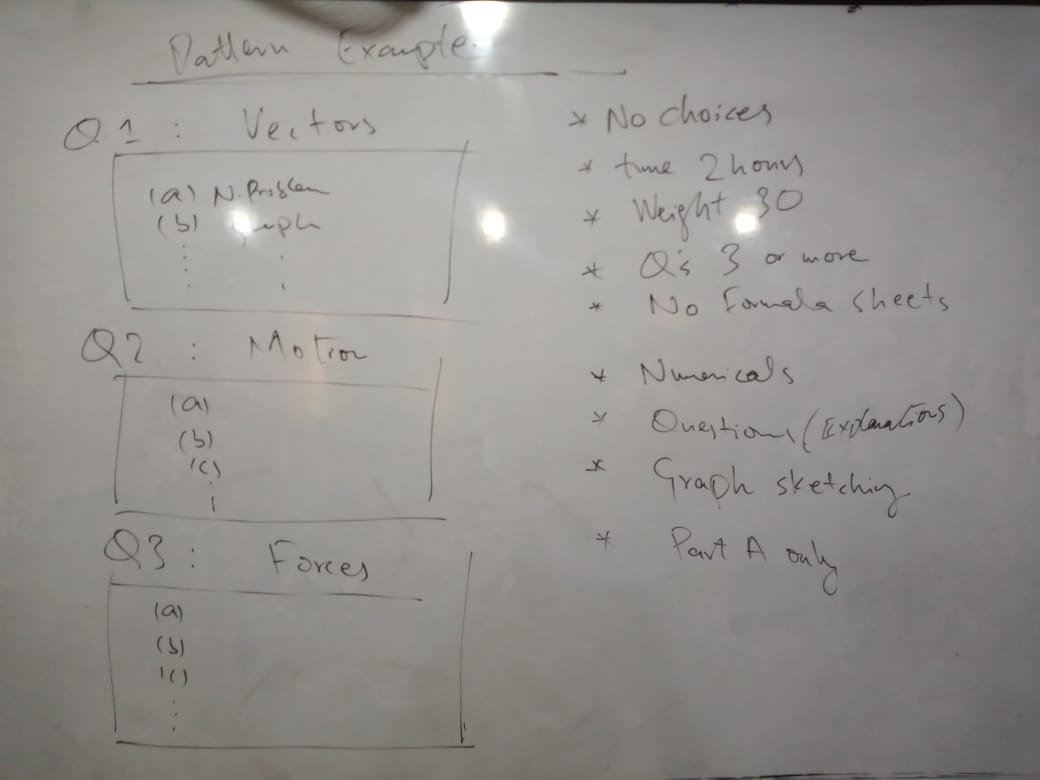 Pattern Example
Q.1 : Vectors
(a) N. Problem
(b) Graph
Q2 : Motion
(a)
(b)
(c)
Q3 : Forces
(a)
(b)
(c)
* No choices
* time 2 hours
* Weight 30
* Q's 3 or more
* No Formula sheets
* Numericals
* Questions (Explanations)
* Graph sketching
* Part A only